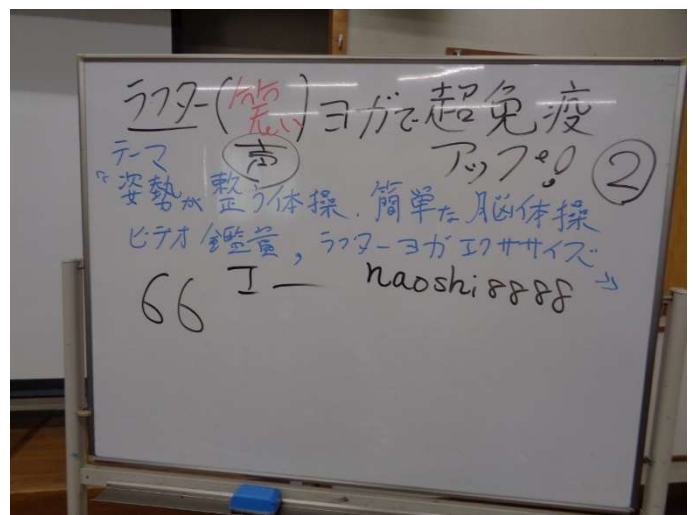 ラフター(笑い)ヨガで超免疫
アップ!! ②
テーマ 声
『姿勢が整う体操、簡単な脳体操
ビデオ鑑賞,ラフターヨガエクササイズ』
66 エー naoshi8888